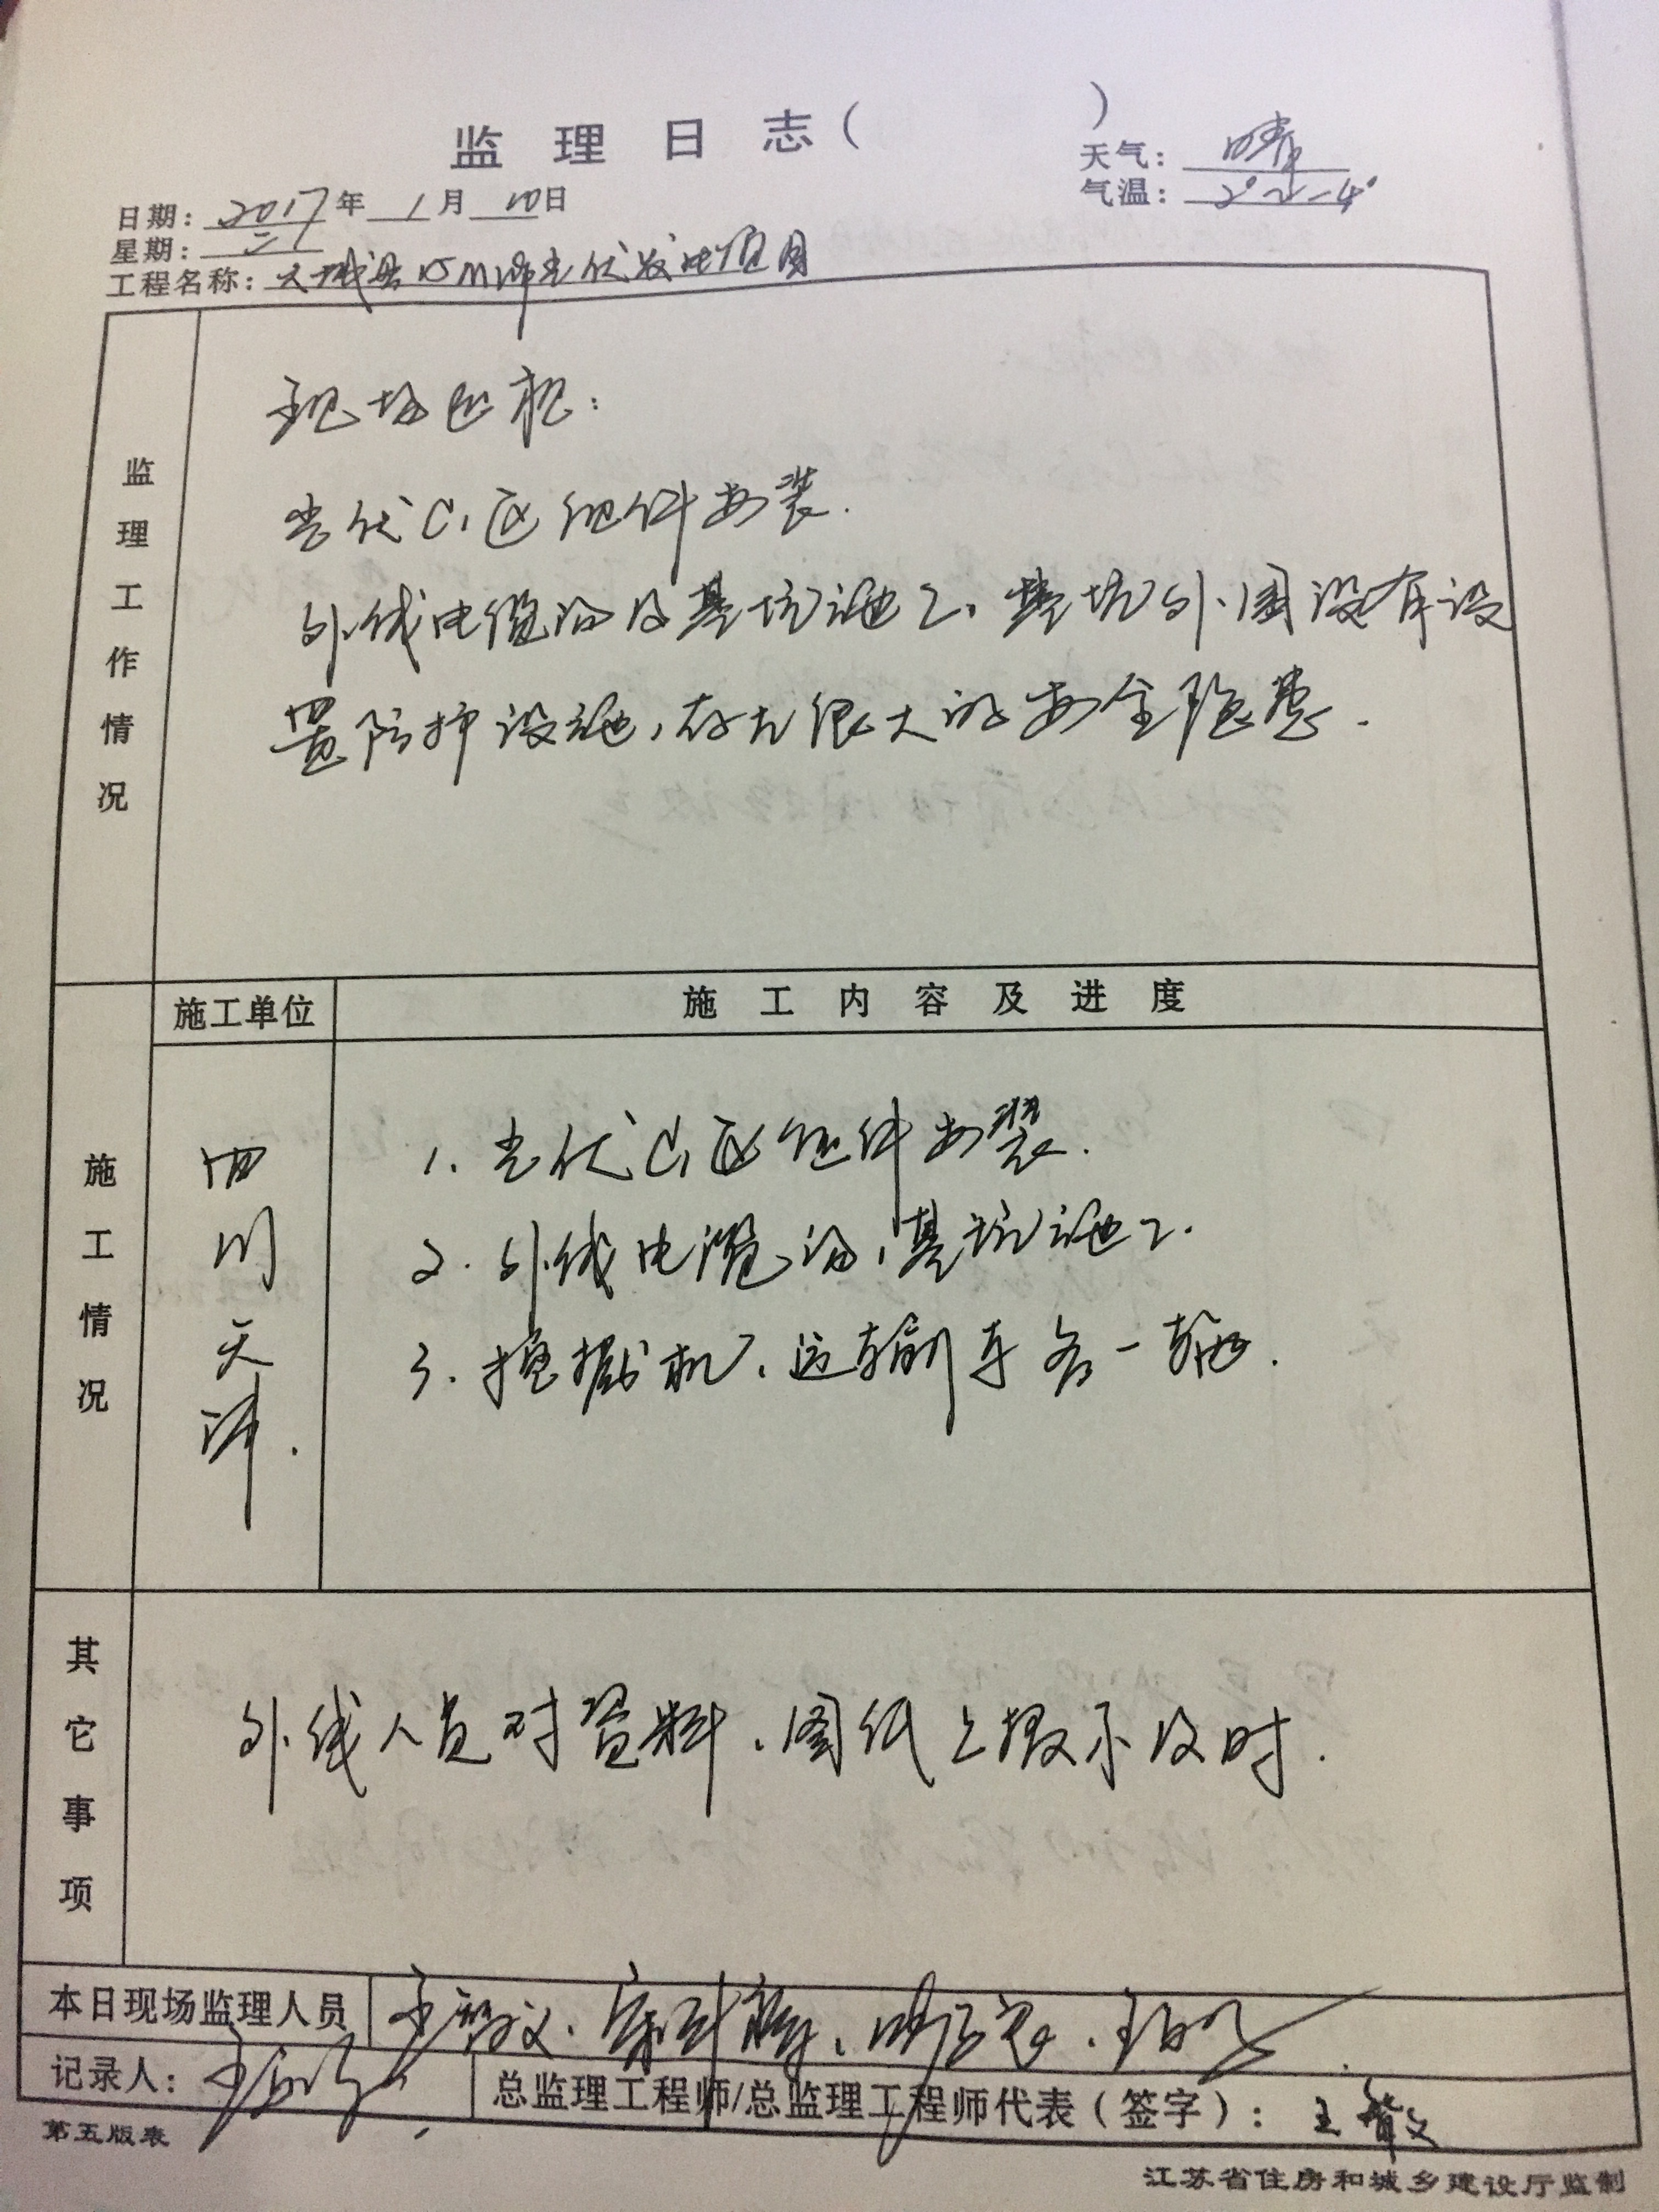 监理日志(        )
天气: 晴
日期: 2017年1月10日
气温: 2°~-4°
星期: 二
工程名称: 大城县15MW光伏发电项目
监理工作情况
现场巡视:
光伏C1区组件安装.
外线电缆沟及基坑施工、基坑外围没有设
置防护设施,存在很大的安全隐患.
施工情况
施工单位
施工内容及进度
四川天津.
1. 光伏C1区组件安装.
2. 外线电缆沟、基坑施工.
3. 挖掘机、运输车各一辆.
其它事项
外线人员对资料、图纸上报不及时.
本日现场监理人员
记录人:
总监理工程师/总监理工程师代表(签字):
第五版表
江苏省住房和城乡建设厅监制